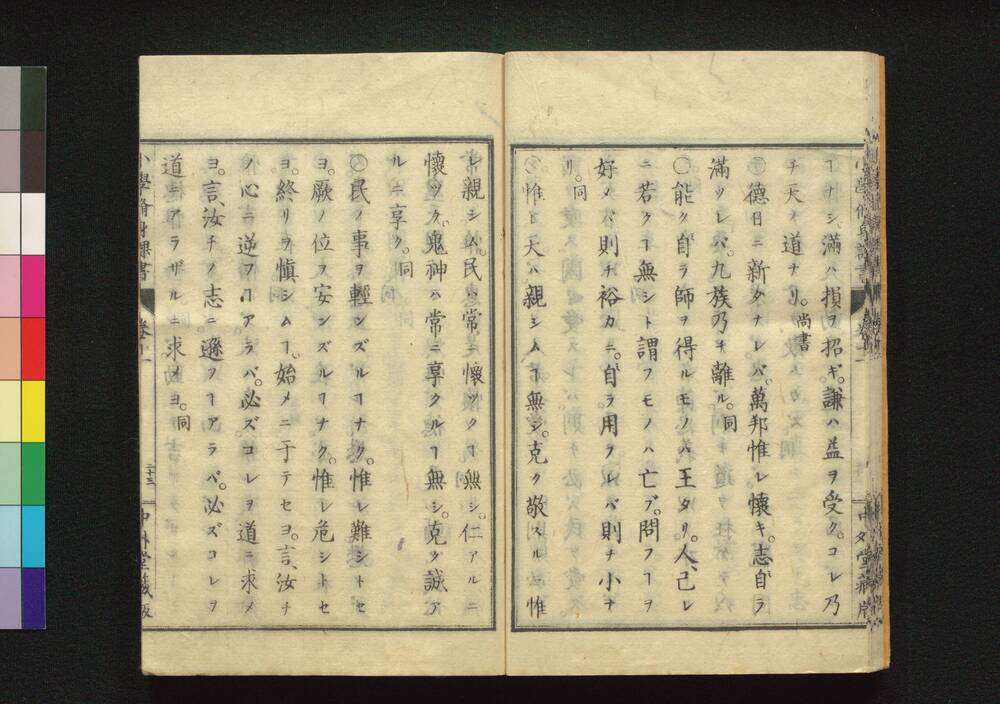 ヿナシ滿ハ損ヲ招ギ。謙ハ益ヲ受ク。コレ乃
チ天ノ道ナリ。尚書
〇德日ニ新タナレバ。萬邦惟レ懷キ。志自ラ
滿ツレバ。九族乃チ離ル。同
〇能ク自ラ師ヲ得ルモノハ王タリ。人、己レ
ニ若クヿ無シト謂フモノハ亡ブ。問フヿヲ
好メバ則チ裕カニ。自ラ用フレバ則チ小ナ
リ。同
〇惟ヒ天ハ親シムヿ無シ。克ク敬スルニ惟
レ親シム。民ハ常ニ懷ツクヿ無シ。仁アルニ
懷ツク。鬼神ハ常ニ享クルヿ無シ。克ク誠ア
ルニ享ク。同
〇民ノ事ヲ輕ンズルヿナク。惟レ難シトセ
ヨ。厥ノ位ヲ安ンズルヿナク。惟レ危シトセ
ヨ。終リヲ愼シムヿ。始メニ于テセヨ。言、汝チ
ノ心ニ逆フヿアラバ。必ズコレヲ道ニ求メ
ヨ。言、汝チノ志ニ遜フヿアラバ。必ズコレヲ
道ニアラザルニ求メヨ。同
小學脩身課書 卷十一 二十三 中外堂藏版